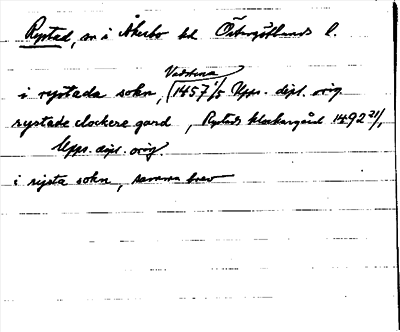 Rystad, sn i Åkerbo hd Östergötlands l.
Vadstena
i rystada sokn, (1457 1/5 Upps. dipl. orig.
rystade clockere gard, Rystads klockargård 1492 21/1,
Upps. dipl. orig.
i rijsta sokn, samma brev